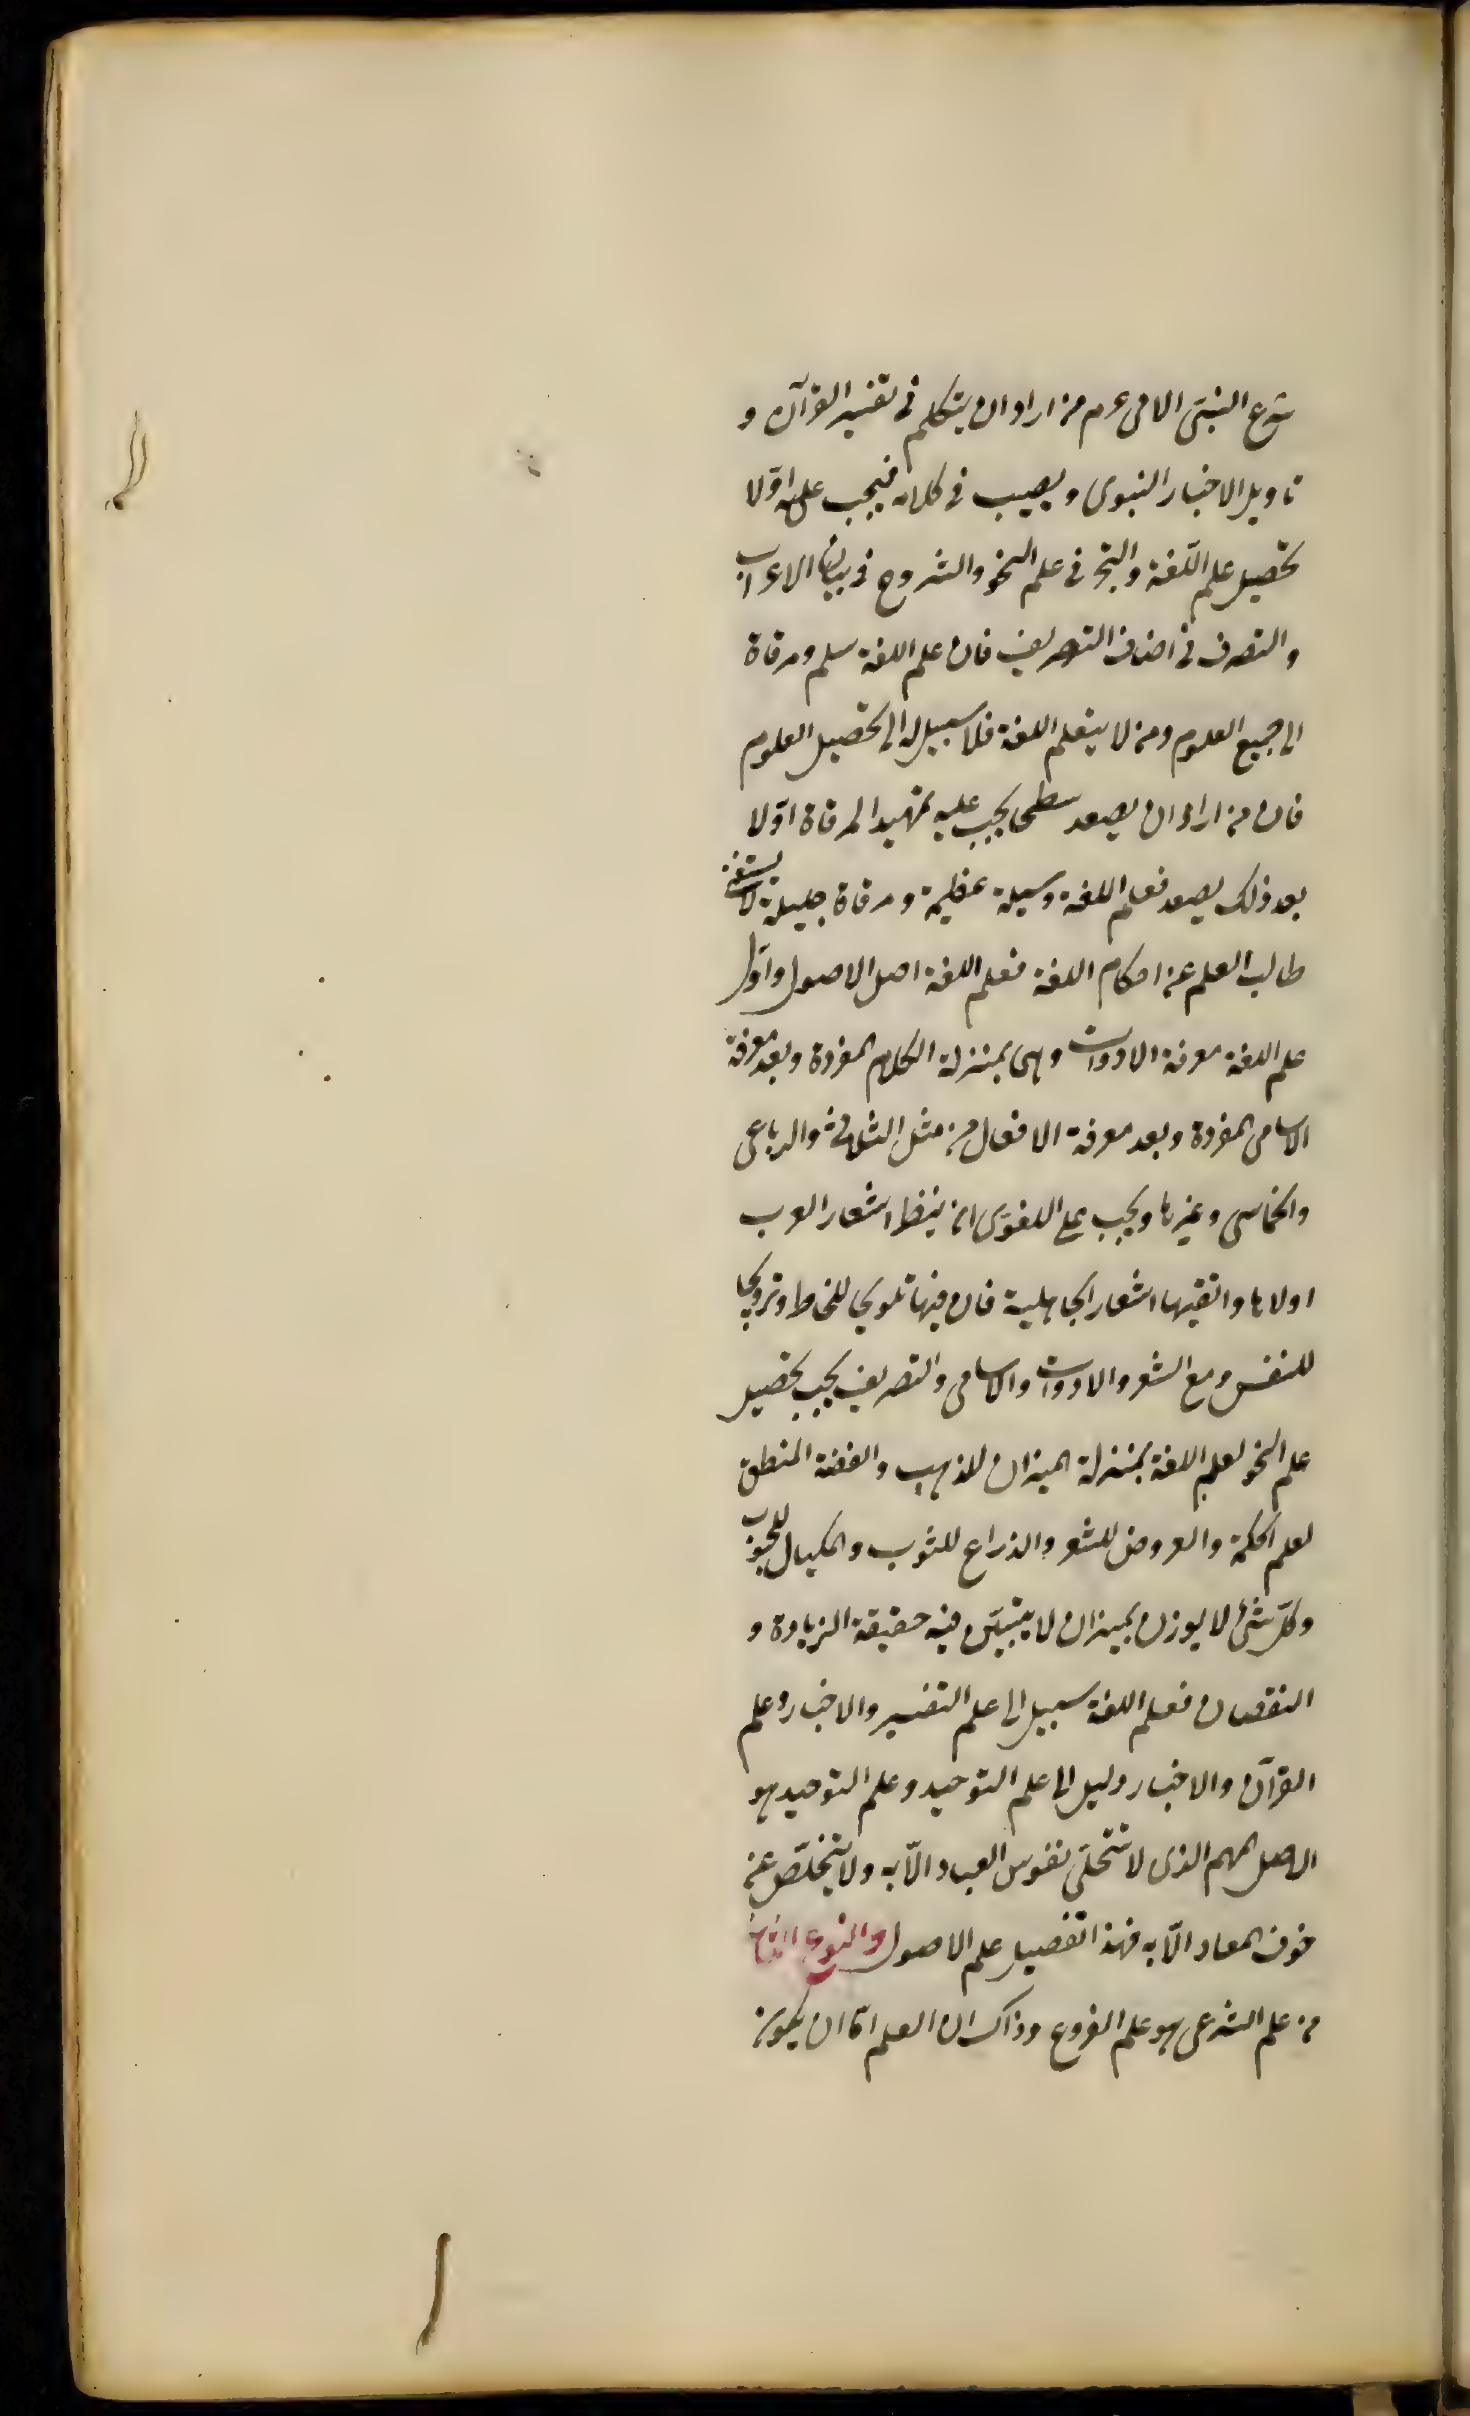 شرع النبى الامى عم من اراد ان يتكلم فى تفسير القرآن و
تاويل الاخبار النبوى ويصيب فى كلامه فيجب عليه اوّلا
تحصيل علم اللّغة والتبحّر فى علم النحو والشروح فى بيان الاعراب
والتصرف فى اصناف التصريف فان علم اللغة سلم ومرقاة
الى جميع العلوم ومن لا يتعلم اللغة فلا سبيل له الى تحصيل العلوم
فان من اراد ان يصعد سطحا يجب عليه تمهيد المرقاة اوّلا
بعد ذلك يصعد فعلم اللغة وسيلة عظيمة ومرقاة جليلة لا يستغنى
طالب العلم عن احكام اللغة فعلم اللغة اصل الاصول واوّل
علم اللغة معرفة الادوات وهى بمنزلة الكلام المفردة وبعد معرفة
الاسامى المفردة وبعد معرفة الافعال من مثل الثلاثى والرباعى
والخماسى وغيرها ويجب على اللغوى ان ينظر اشعار العرب
اولاها واتقنها اشعار الجاهلية فان فيها تلويحا للخاطر وترويحا
للنفس ومع الشعر والادوات والاسامى والتصريف يجب تحصيل
علم النحو لعلم اللغة بمنزلة الميزان للذهب والفضة المنطق
لعلم الحكمة والعروض للشعر والذراع للثوب والمكيال للحبوب
وكلّ شئ لا يوزن بميزان لا يتبيّن فيه حقيقة الزيادة و
النقصان فعلم اللغة سبيل الى علم التفسير والاخبار وعلم
القرآن والاخبار دليل الى علم التوحيد وعلم التوحيد هو
الاصل المهم الذى لا تتحلّى نفوس العباد الّا به ولا يتخلّص عن
خوف المعاد الّا به فهذا تفصيل علم الاصول والنوع الثانى
من علم الشرعى هو علم الفروع وذاك ان العلم امّا ان يكون